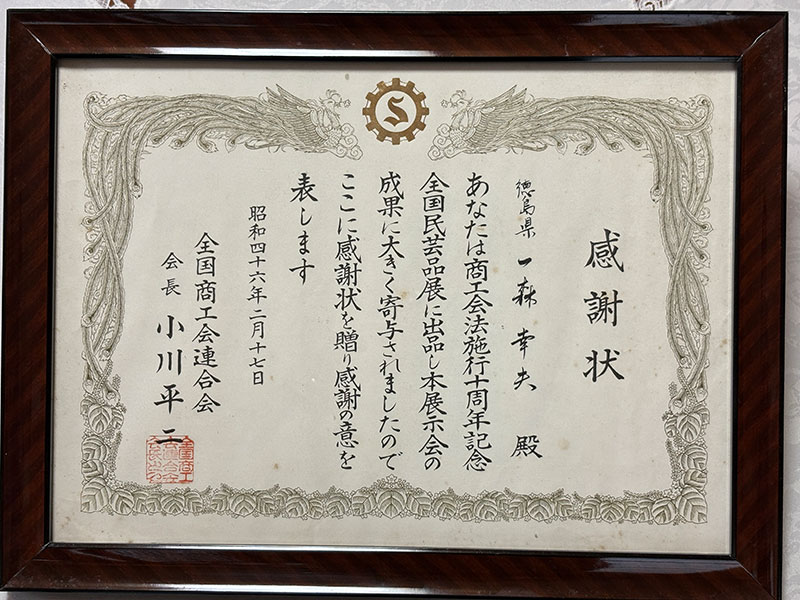 S
感謝状
徳島県 一森幸夫 殿
あなたは商工会法施行十周年記念
全国民芸品展に出品し本展示会の
成果に大きく寄与されましたので
ここに感謝状を贈り感謝の意を
表します
昭和四十六年二月十七日
全国商工会連合会
会長 小川平二